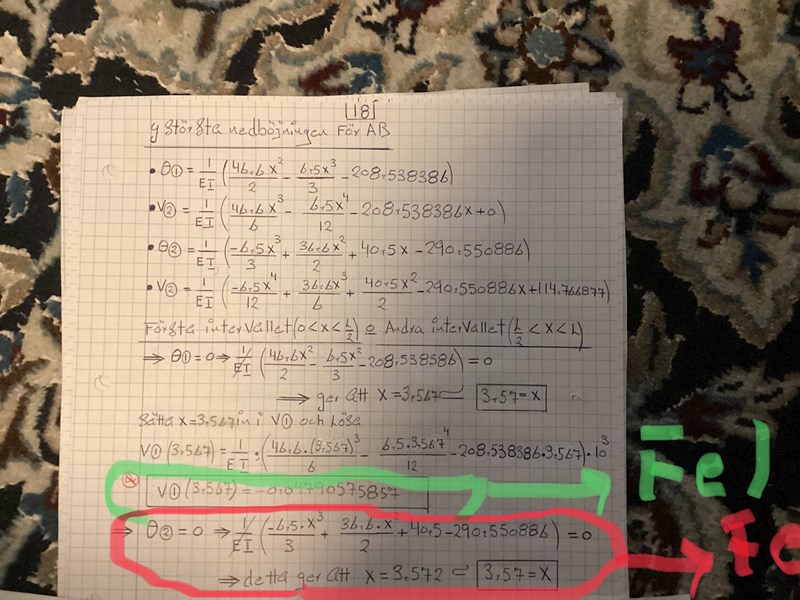 [18]
y största nedböjningen För AB
• θ① = 1/EI (46,6x²/2 - 6,5x³/3 - 208,538386)
• V② = 1/EI (46,6x³/6 - 6,5x⁴/12 - 208,538386x + 0)
• θ② = 1/EI (-6,5x³/3 + 36,6x²/2 + 40,5x - 290,550886)
• V② = 1/EI (-6,5x⁴/12 + 36,6x³/6 + 40,5x²/2 - 290,550886x + 114,766877)
Första intervallet (0<x<L/2) o Andra intervallet (L/2 < x < L)
⇒ θ① = 0 ⇒ 1/EI (46,6x²/2 - 6,5x³/3 - 208,538386) = 0
⇒ ger att x = 3,567 ≈ 3,57 = x
Sätta x = 3,567 in i V① och lösa
V① (3,567) = 1/EI · (46,6·(3,567)³/6 - 6,5·3,567⁴/12 - 208,538386·3,567)·10³
V① (3,567) = -0,04790575857 → Fel
⇒ θ② = 0 ⇒ 1/EI (-6,5·x³/3 + 36,6·x²/2 + 40,5 - 290,550886) = 0 → Fe
⇒ detta ger att x = 3,572 ≈ 3,57 = x